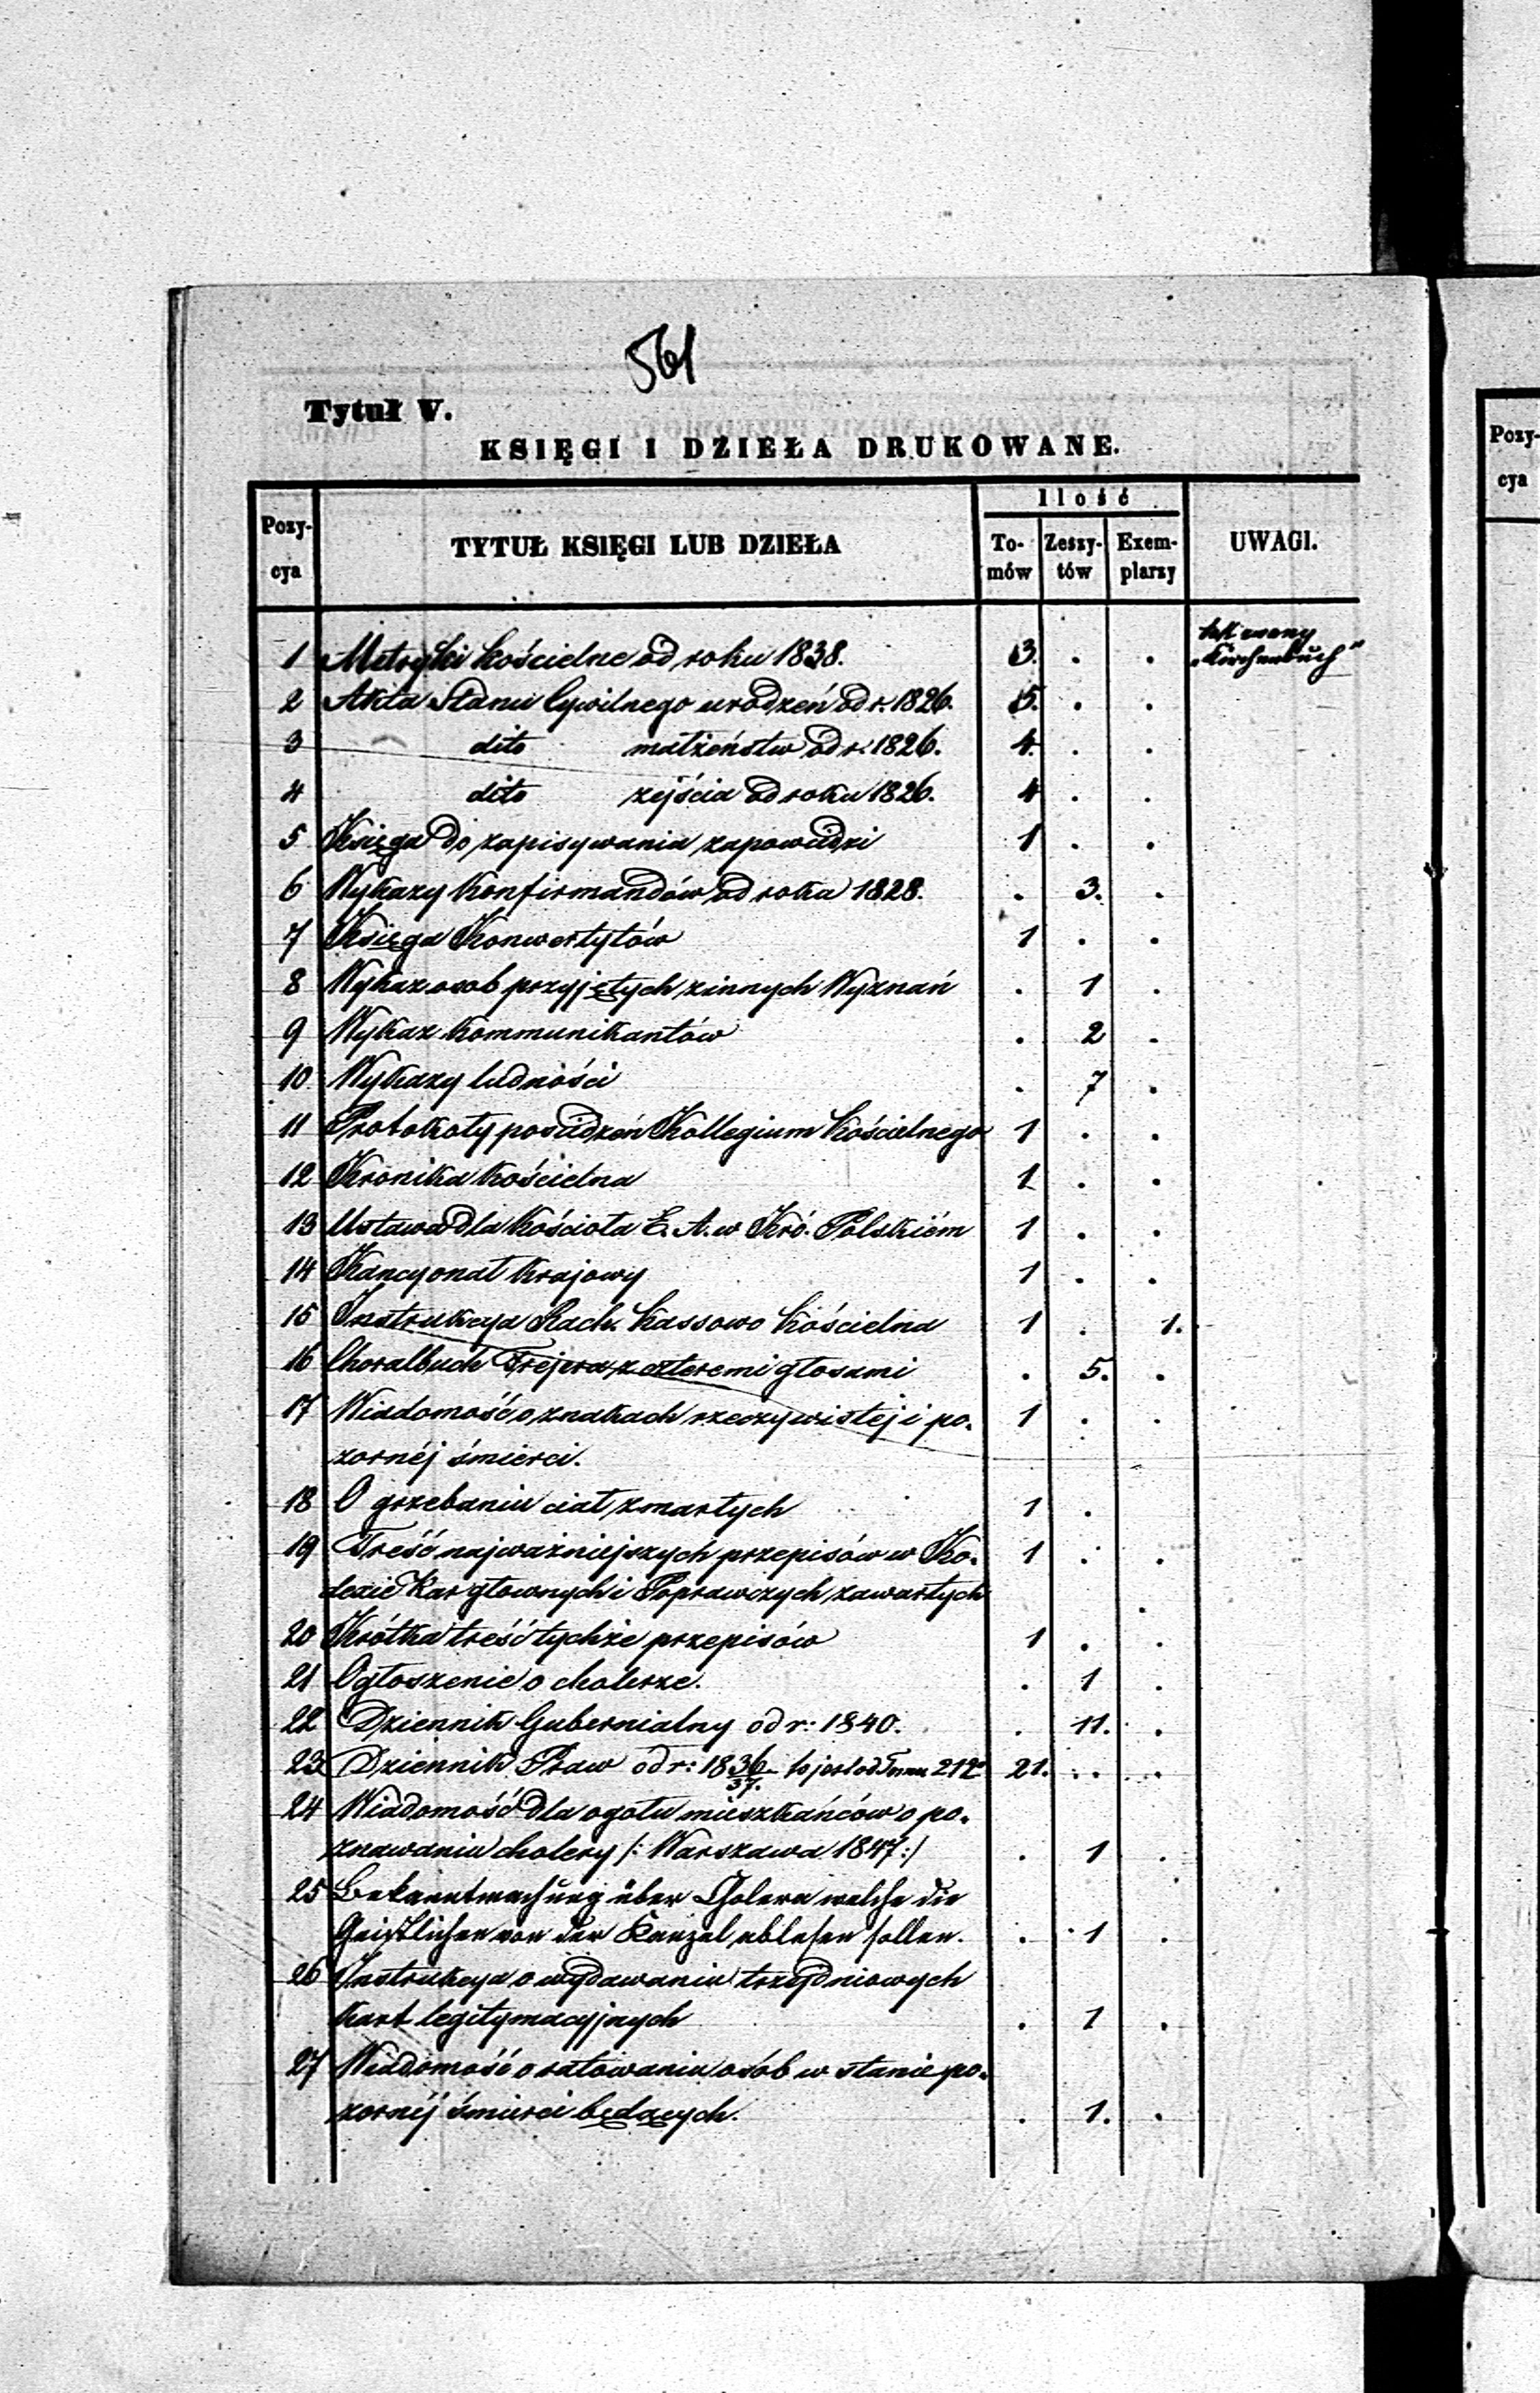 561
Tytuł V.
KSIĘGI I DZIEŁA DRUKOWANE.
Pozy-cya TYTUŁ KSIĘGI LUB DZIEŁA Ilość To-mów Zeszy-tów Exem-plarzy UWAGI.
1 Metryki kościelne od roku 1838. 3. . . tak zwany „Kirchenbuch"
2 Akta Stanu Cywilnego urodzeń od r. 1826. 5. . .
3 dito małżeństw od r. 1826. 4. . .
4 dito zejścia od roku 1826. 4 . .
5 Księga do zapisywania zapowiedzi 1 . .
6 Wykazy Konfirmandów od roku 1828. . 3. .
7 Księga Konwertytów 1 . .
8 Wykaz osob przyjętych z innych Wyznań . 1 .
9 Wykaz Kommunikantów . 2 .
10 Wykazy ludności . 7 .
11 Protokoły posiedzeń Kollegium Kościelnego 1 . .
12 Kronika Kościelna 1 . .
13 Ustawa dla Kościoła E. A. w Kró. Polskiém 1 . .
14 Kancyonał Krajowy 1 . .
15 Instrukcya Rach. Kassowo Kościelna 1 . 1.
16 Choralbuch Frejera z czteremi głosami . 5. .
17 Wiadomość o znakach rzeczywistej i po- 1 . .
zornéj śmierci.
18 O grzebaniu ciał zmarłych 1 .
19 Treść najważniejszych przepisów w Ko- 1 . .
dexie Kar głownych i Poprawczych zawartych
20 Krótka treść tychże przepisów 1 . .
21 Ogłoszenie o cholerze. . 1 .
22 Dziennik Gubernialny od r: 1840. . 11. .
23 Dziennik Praw od r: 1836/37. to jest od Tomu 212º 21. . .
24 Wiadomość dla ogołu mieszkańców o po-
znawaniu cholery /: Warszawa 1847 :/ . 1 .
25 Bekanntmachung über Cholera welche die
Geistlichen von der Kanzel ablesen sollen. . 1 .
26 Instrukcya o wydawaniu trzydniowych
kart legitymacyjnych . 1 .
27 Wiadomość o ratowaniu osób w stanie po-
zornéj śmierci będących. . 1. .
Pozy-
cya